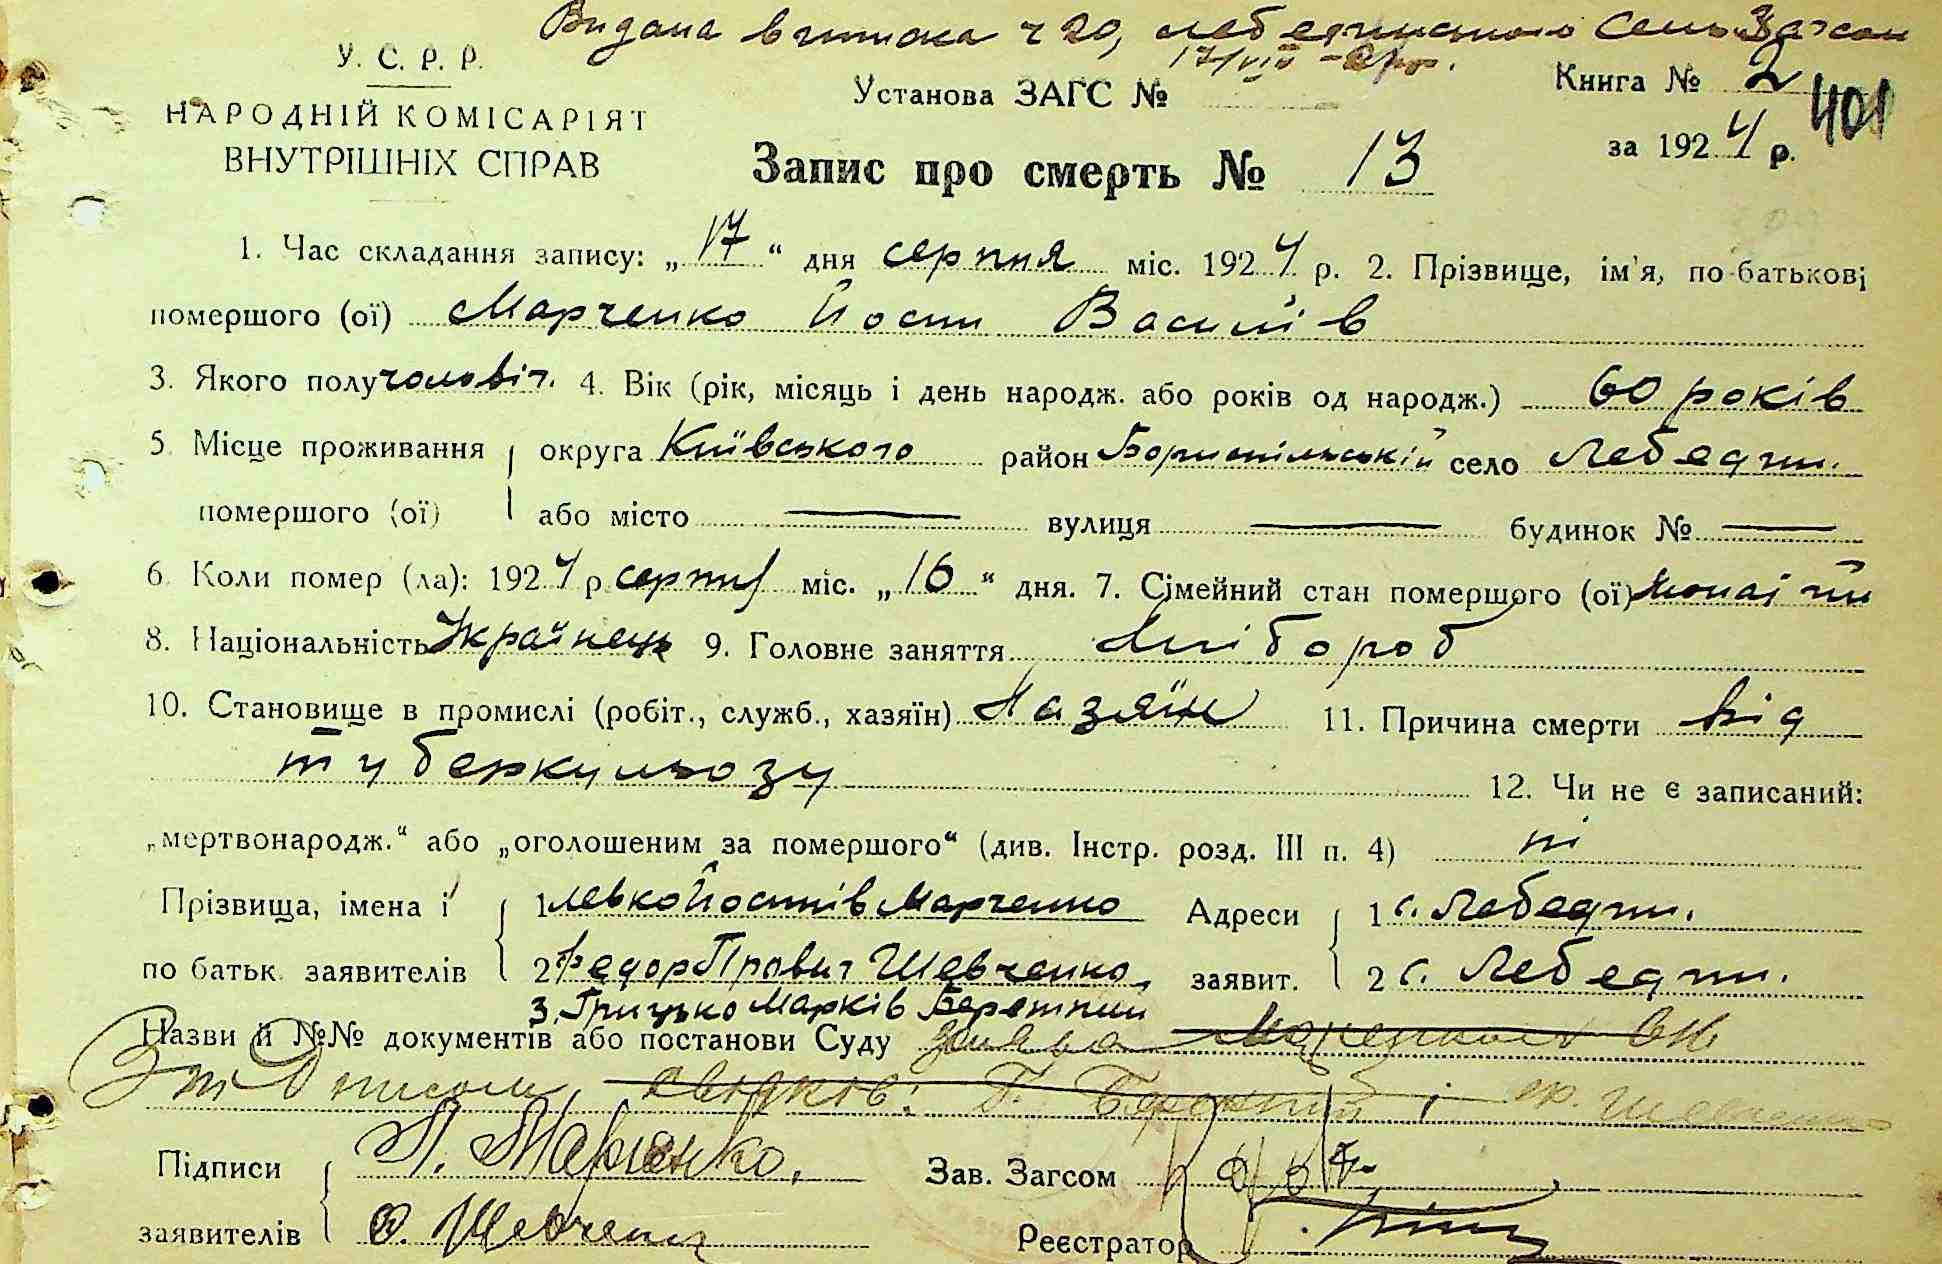 Видана виписка ч 20,
17/VIII
У. С. Р. Р.
НАРОДНІЙ КОМІСАРІЯТ
ВНУТРІШНІХ СПРАВ
Установа ЗАГС №
Книга № 2
401
за 1924 р.
Запис про смерть № 13
1. Час складання запису: „17“ дня серпня міс. 1924 р. 2. Прізвище, ім'я, по-батькові
помершого (ої) Марченко Йосип Василів
3. Якого полу чоловіч. 4. Вік (рік, місяць і день народж. або років од народж.) 60 років
5. Місце проживання округа Київського район Бориспільській село Лебедин.
помершого (ої) або місто — вулиця — будинок № —
6. Коли помер (ла): 1924 р серпня міс. „16“ дня. 7. Сімейний стан помершого (ої)
8. Національність Українець 9. Головне заняття Хлібороб
10. Становище в промислі (робіт., служб., хазяїн) Хазяїн 11. Причина смерти від
туберкульозу
12. Чи не є записаний:
„мертвонародж.“ або „оголошеним за помершого“ (див. Інстр. розд. III п. 4) ні
Прізвища, імена і 1 Левко Йосипів Марченко Адреси 1 с. Лебедин.
по батьк. заявителів 2 Федор Шевченко заявит. 2 с. Лебедин.
3. Грицько Марків Бережний
Назви й №№ документів або постанови Суду заява
свідків: Г. Бережний і
Підписи Л. Марченко, Зав. Загсом
заявителів Ф. Шевченко Реєстратор